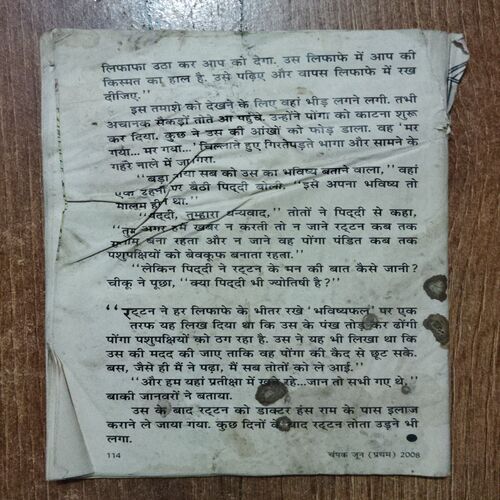 लिफाफा उठा कर आप को देगा. उस लिफाफे में आप की
किस्मत का हाल है. उसे पढ़िए और वापस लिफाफे में रख
दीजिए.''
इस तमाशे को देखने के लिए वहां भीड़ लगने लगी. तभी
अचानक सैकड़ों तोते आ पहुंचे. उन्होंने पोंगा को काटना शुरू
कर दिया. कुछ ने उस की आंखों को फोड़ डाला. वह 'मर
गया... मर गया...' चिल्लाते हुए गिरतेपड़ते भागा और सामने के
गहरे नाले में जा गिरा.
''बड़ा आया सब को उस का भविष्य बताने वाला,'' वहां
एक टहनी पर बैठी पिद्दी बोली. ''इसे अपना भविष्य तो
मालूम ही न था.''
''पिद्दी, तुम्हारा धन्यवाद,'' तोतों ने पिद्दी से कहा,
''तुम अगर हमें खबर न करती तो न जाने रट्टन कब तक
गुलाम बना रहता और न जाने वह पोंगा पंडित कब तक
पशुपक्षियों को बेवकूफ बनाता रहता.''
''लेकिन पिद्दी ने रट्टन के मन की बात कैसे जानी?
चीकू ने पूछा, ''क्या पिद्दी भी ज्योतिषी है?''
''रट्टन ने हर लिफाफे के भीतर रखे 'भविष्यफल' पर एक
तरफ यह लिख दिया था कि उस के पंख तोड़ कर ढोंगी
पोंगा पशुपक्षियों को ठग रहा है. उस ने यह भी लिखा था कि
उस की मदद की जाए ताकि वह पोंगा की कैद से छूट सके.
बस, जैसे ही मैं ने पढ़ा, मैं सब तोतों को ले आई.''
''और हम यहां प्रतीक्षा में रहे...जान तो सभी गए थे,''
बाकी जानवरों ने बताया.
उस के बाद रट्टन को डाक्टर हंस राम के पास इलाज
कराने ले जाया गया. कुछ दिनों के बाद रट्टन तोता उड़ने भी
लगा.
114
चंपक जून (प्रथम) 2008